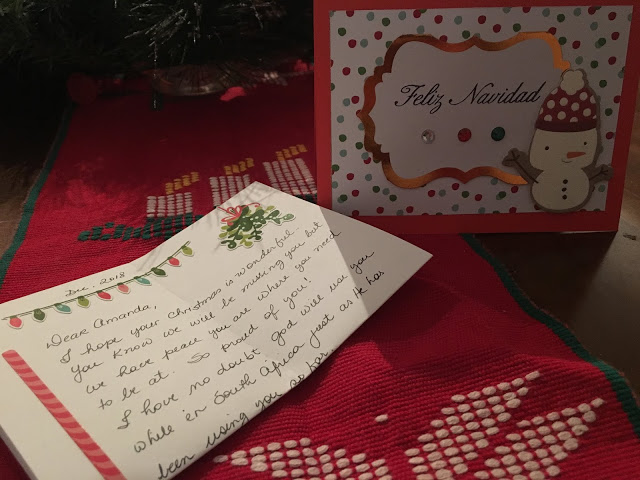 Feliz Navidad
Dec. 2018
Dear Amanda,
I hope your Christmas is wonderful.
You know we will be missing you but
we have peace you are where you need
to be at. So proud of you!
I have no doubt God will use you
while en South Africa just as He has
been using you so far.